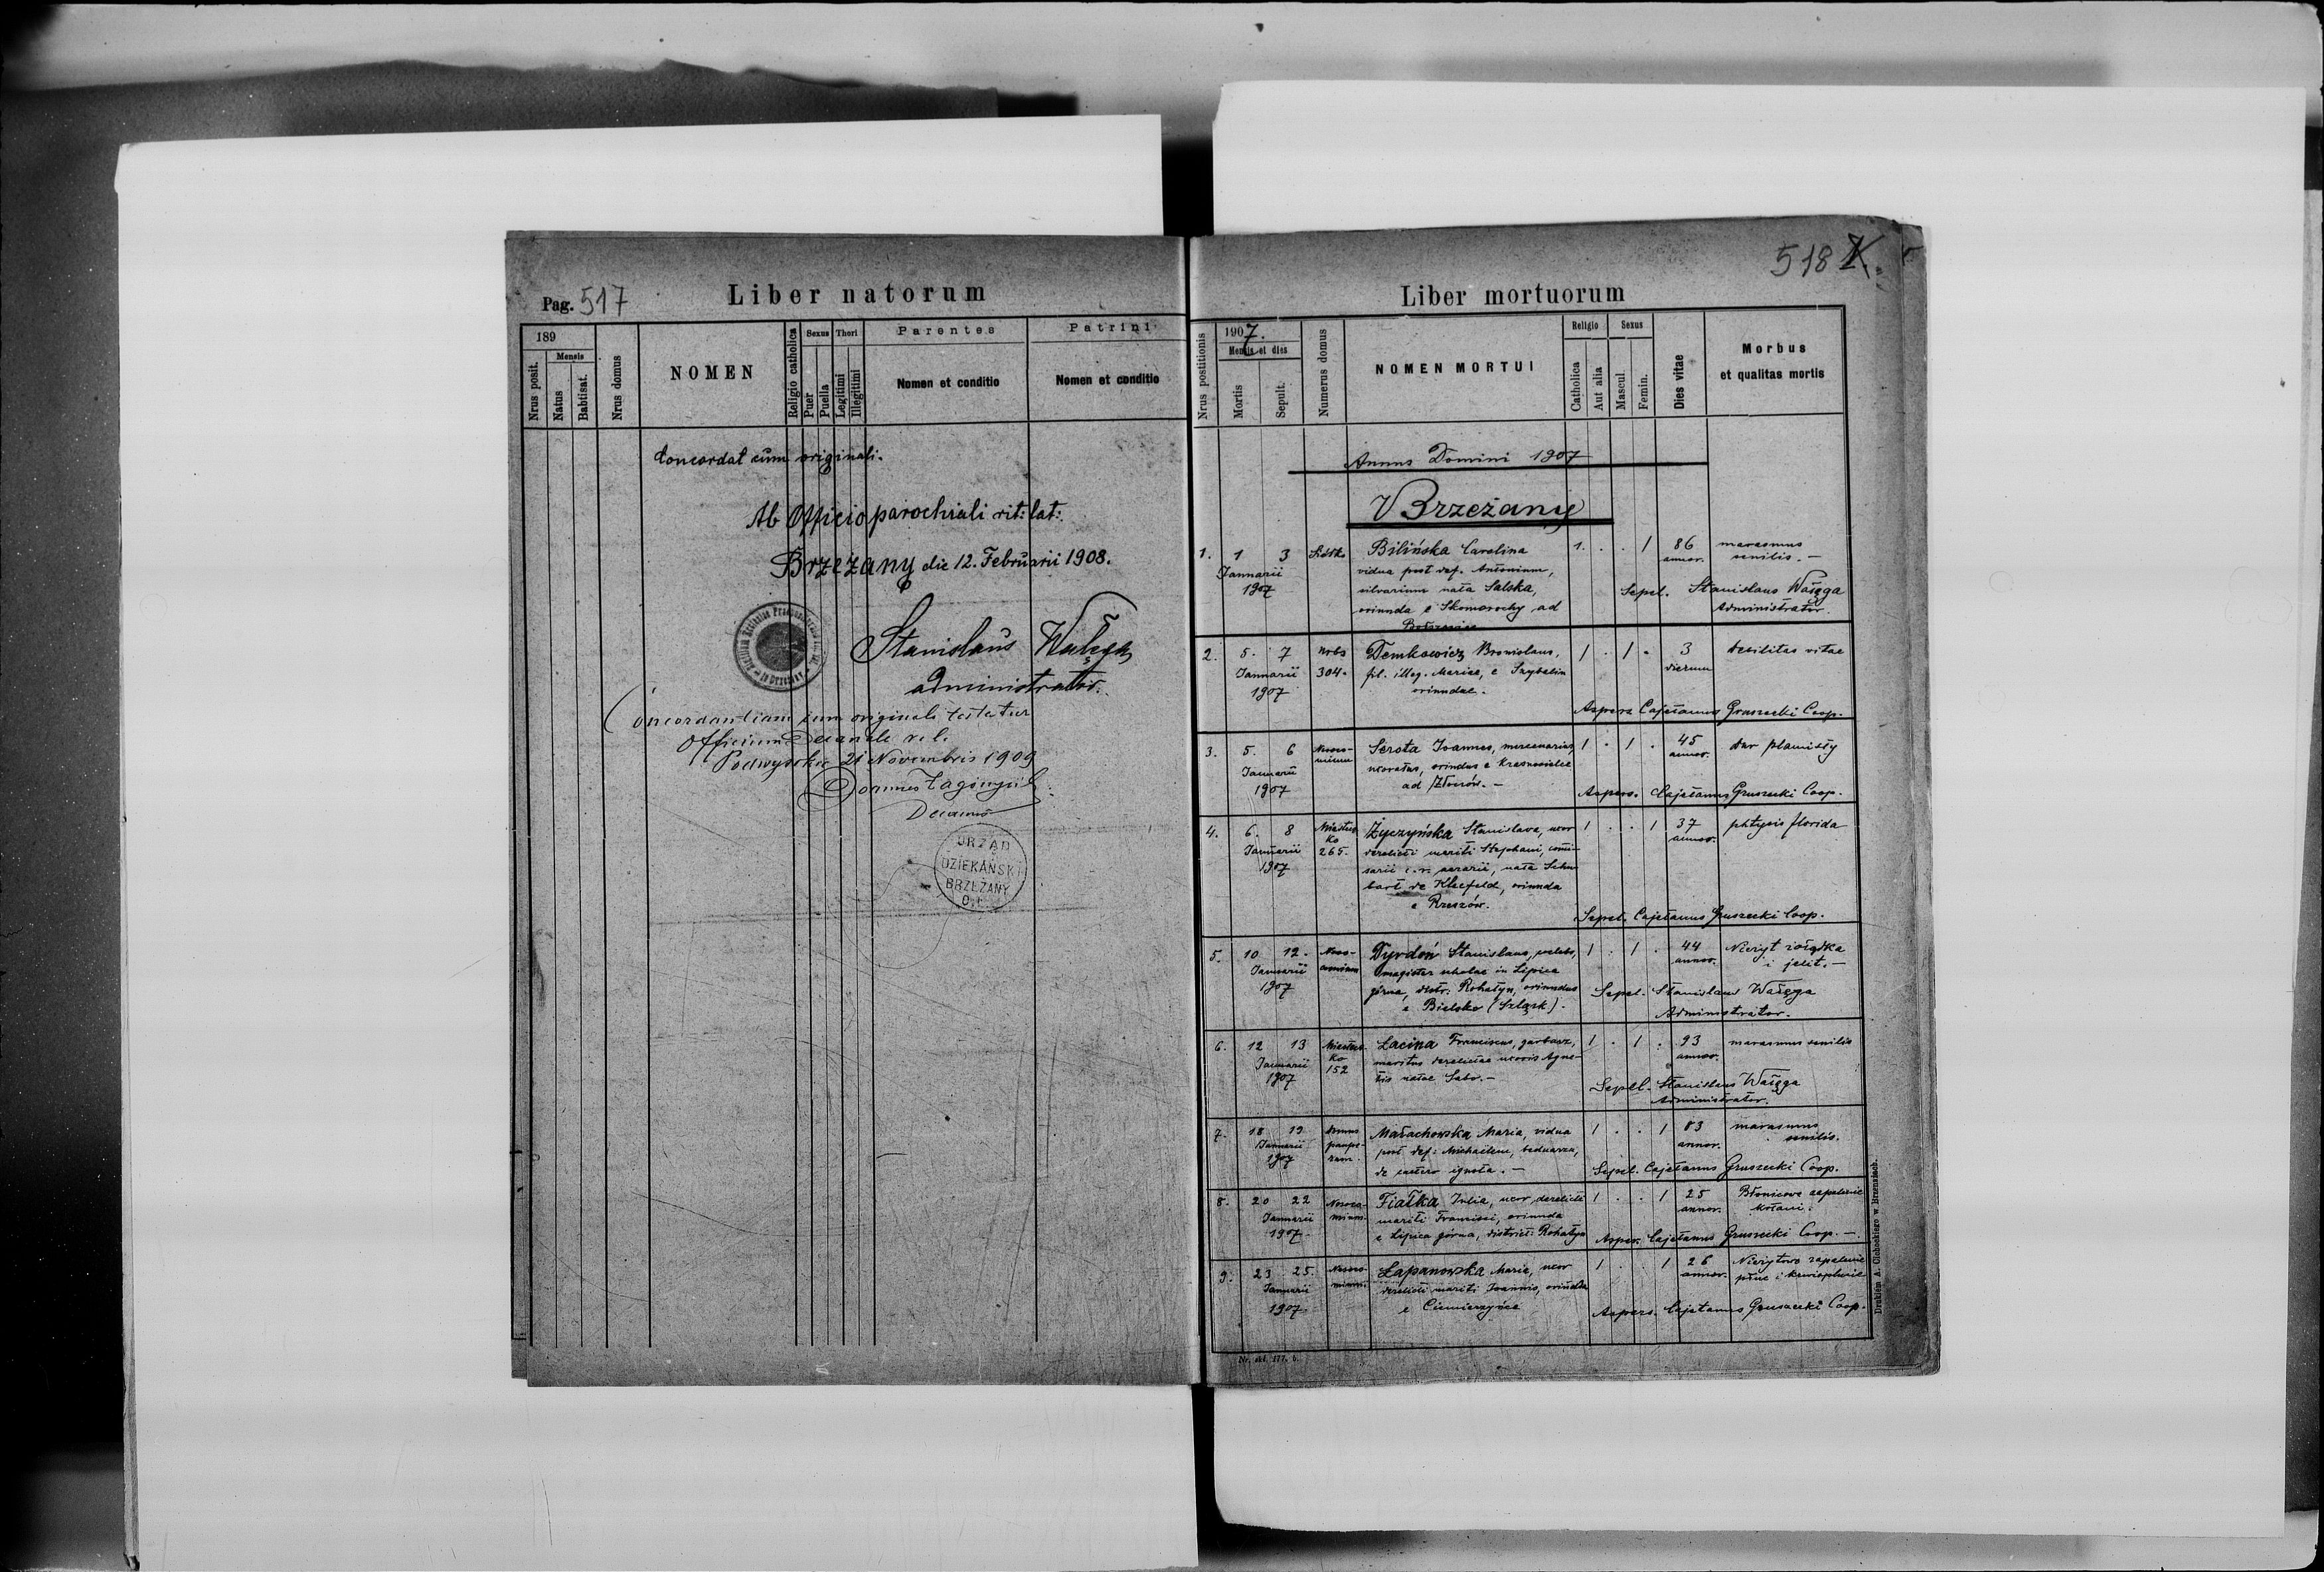 Pag. 517
Liber natorum
189
Nrus posit.
Mensis
Natus
Babtisat.
Nrus domus
NOMEN
Religio catholica
Sexus
Puer
Puella
Thori
Legitimi
Illegitimi
Parentes
Nomen et conditio
Patrini
Nomen et conditio
Concordat cum originali.
Ab Officio parochiali rit: lat:
Brzeżany die 12. Februarii 1908.
Stanislaus Wałęga
administrator.
Concordantiam cum originali testatur
Officium Decanale r. l.
Podwysokie 21 Novembris 1909
Joannes
Decanus
URZĄD
DZIEKAŃSKI
BRZEŻANY
518
Liber mortuorum
Nrus postitionis
1907.
Mensis et dies
Mortis
Sepult.
Numerus domus
NOMEN MORTUI
Religio
Catholica
Aut alia
Sexus
Mascul.
Femin.
Dies vitae
Morbus
et qualitas mortis
Annus Domini 1907
Brzeżany
1. 1 3 Siółko Bilińska Carolina 1. . . 1 86 marasmus
Januarii vidua post def. Antonium, annor. senilis. —
1907 silvarium nata Salska, Sepel. Stanislaus Wałęga
oriunda e Skomorochy ad Administrator.
Bołszowce
2. 5. 7 Urbs Demkowicz Bronislaus, 1 . 1 . 3 debilitas vitae
Januarii 304. fil. illeg. Mariae, e Szybalin dierum
1907 oriundae.
Aspers. Cajetanus Gruszecki Coop.
3. 5. 6 Nosocomium Serota Joannes, mercenarius, 1 . 1 . 45 dur plamisty
Januarii uxoratus, oriundus e Krasnosielce annor.
1907 ad Złoczów. — Aspers. Cajetanus Gruszecki Coop.
4. 6. 8 Miasteczko Życzyńska Stanislava, uxor 1 . . 1 37 phtysis florida
Januarii 265. derelicti mariti Stephani, commi- annor.
1907 sarii c. r. aerarii, nata Schu-
bart de Kleefeld, oriunda
e Rzeszów.
Sepel. Cajetanus Gruszecki Coop.
5. 10 12. Noso- Dyrdoń Stanislaus, caelebs, 1 . 1 . 44 Nieżyt żołądka
Januarii comium magister scholae in Lipica annor. i jelit. —
1907 górna, distr. Rohatyn, oriundus Sepel. Stanislaus Wałęga
e Bielsko (Szląsk). Administrator.
6. 12 13 Miastecz- Lacina Franciscus, garbarz, 1 . 1 . 93 marasmus senilis
Januarii ko maritus derelictae uxoris Agne- annor.
1907 152 tis natae Sabo. — Sepel. Stanislaus Wałęga
Administrator.
7. 18 19 Domus Małachowska Maria, vidua 1 . . 1 83 marasmus
Januarii paupe- post def: Michaelem, bednarza, annor. senilis.
1907 rum. de caetero ignota. — Sepel. Cajetanus Gruszecki Coop.
8. 20 22 Nosoco- Fiałka Julia, uxor derelicti 1 . . 1 25 Błonicowe zapalenie
Januarii mium. mariti Francisci, oriunda annor.
1907. e Lipica górna, district: Rohatyn Aspers. Cajetanus Gruszecki Coop. —
9. 23 25. Nosoco- Łapanowska Maria, uxor 1 . . 1 26 Nieżytowe zapalenie
Januarii mium. derelicti mariti Joannis, oriunda annor. płuc i krwioplucie
1907. e Ciemierzyńce Aspers. Cajetanus Gruszecki Coop.
Nr. skł. 177. b.
Drukiem A. Cichockiego w Brzesku.